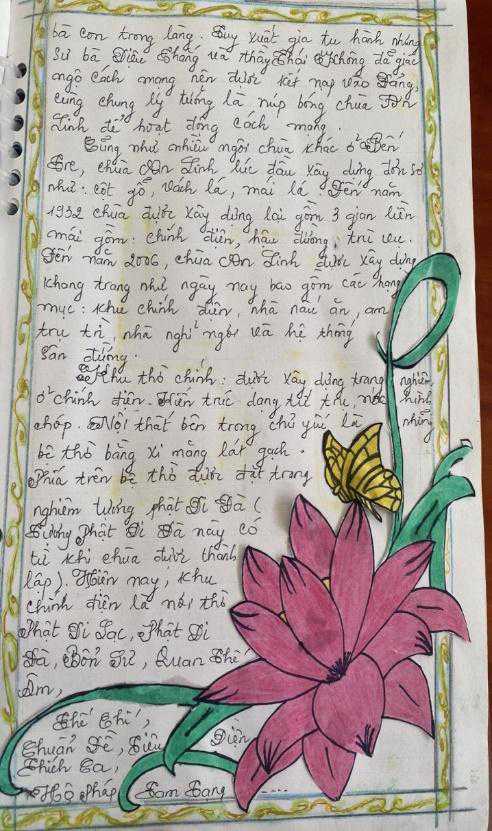 bà con trong làng. Tuy xuất gia tu hành nhưng
Sư bà Diệu Thắng và thầy Thái Không đã giác
ngộ cách mạng nên được kết nạp vào Đảng,
cùng chung lý tưởng là núp bóng chùa An
Linh để hoạt động cách mạng.
Cũng như nhiều ngôi chùa khác ở Bến
Tre, chùa An Linh lúc đầu xây dựng đơn sơ
như: cột gỗ, vách lá, mái lá. Đến năm
1932 chùa được xây dựng lại gồm 3 gian liền
mái gồm: chính điện, hậu đường, trù vu.
Đến năm 2006, chùa An Linh được xây dựng
khang trang như ngày nay bao gồm các hạng
mục: khu chính điện, nhà nấu ăn, am
trụ trì, nhà nghỉ ngơi và hệ thống
sân đường.
Khu thờ chính: được xây dựng trang nghiêm
ở chính điện. Kiến trúc dạng tứ trụ, nóc hình
chóp. Nội thất bên trong chủ yếu là những
bệ thờ bằng xi măng lát gạch.
Phía trên bệ thờ được đặt trang
nghiêm tượng phật Di Đà (
Tượng Phật Di Đà này có
từ khi chùa được thành
lập). Hiện nay, khu
chính điện là nơi thờ
Phật Di Lạc, Phật Di
Đà, Bổn Sư, Quan Thế
Âm,
Thế Chí,
Chuẩn Đề, Tiêu Diện
Thích Ca,
Hộ Pháp, Tam Tạng ....